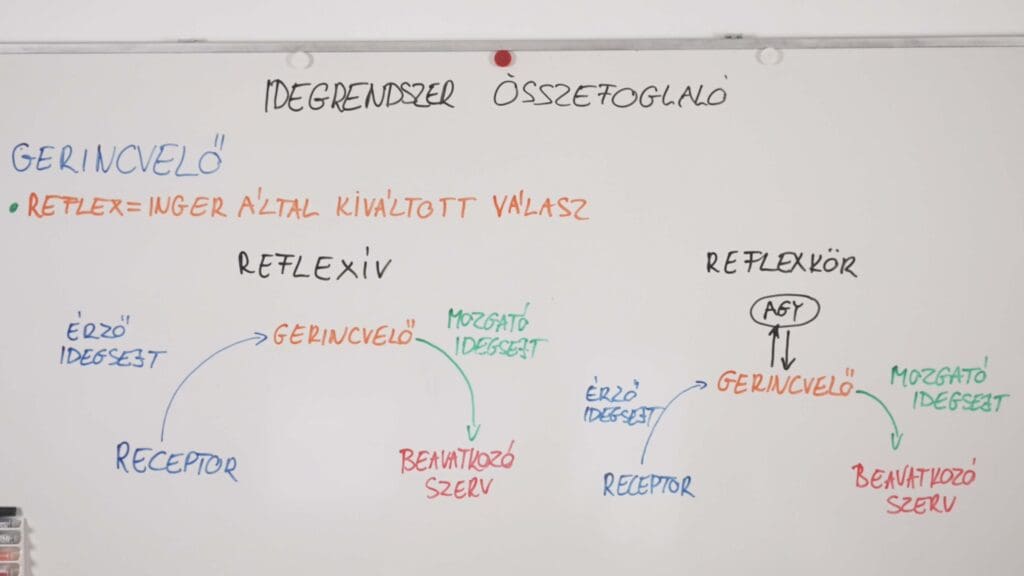 IDEGRENDSZER ÖSSZEFOGLALÓ
GERINCVELŐ
• REFLEX=INGER ÁLTAL KIVÁLTOTT VÁLASZ
REFLEXÍV
ÉRZŐ
IDEGSEJT
GERINCVELŐ
MOZGATÓ
IDEGSEJT
RECEPTOR
BEAVATKOZÓ
SZERV
REFLEXKÖR
AGY
ÉRZŐ
IDEGSEJT
GERINCVELŐ
MOZGATÓ
IDEGSEJT
RECEPTOR
BEAVATKOZÓ
SZERV